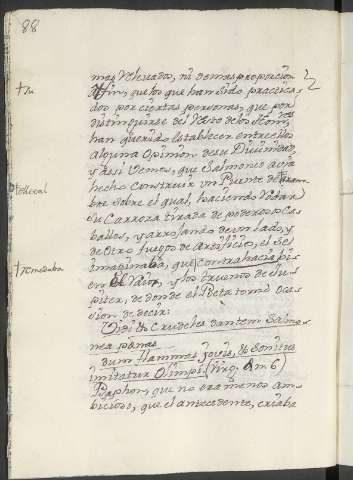 88
mas velevados, ni demas proporcion
†fin, que los que han sido practica-
dos por ciertas personas, que por
distinguirse del resto de los Hom.res
han querido establecer entre ellos
alguna Opinion de su Divinidad,
y assi vemos, que Salmoneo avia
hecho construir un Puente de
bre sobre el qual, haciendo rodar
su Carrera tirada de poderosos Ca
ballos, y arrojando de un lado, y
de otro fuegos de Artificio, el se
imaginaba, que contrahacia
en el los truenos de Ju
piter, de donde el Poeta tomo oca
sion de decir:
Vidi & Crudeles dantem Salmo
nea pœnas
dum flammas jovis, & sonitus
imitatur Olimpi. (Virg. 6)
Psaphon, que no era menos am
bicioso, que el antecedente, criaba
†su
†el qual
†remedaba